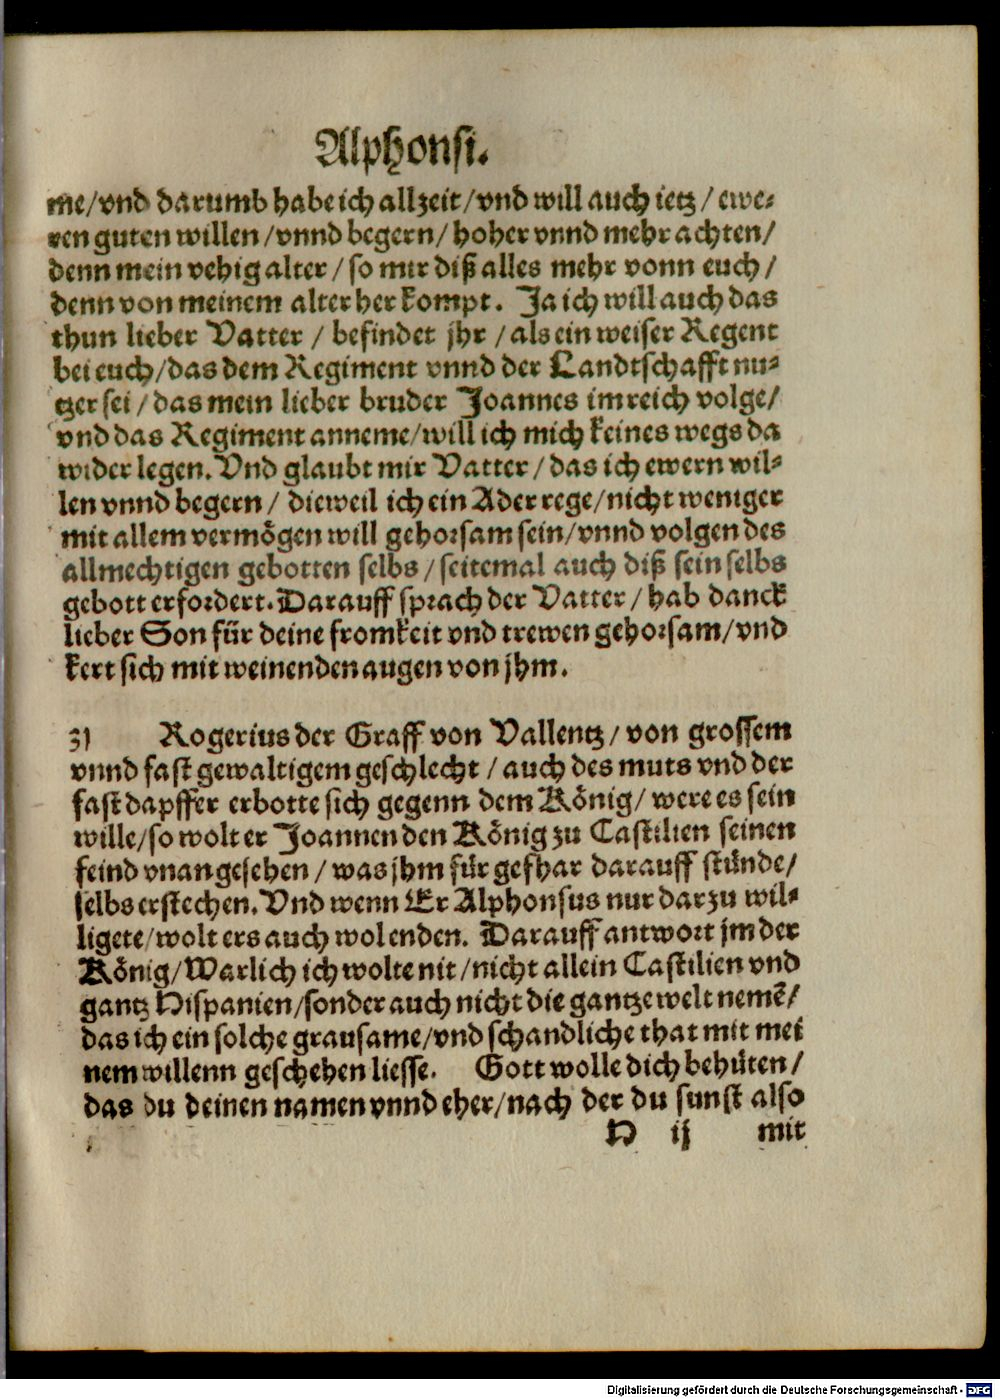 Alphonsi.
me/vnd darumb habe ich allzeit/vnd will auch ietz/ewe⸗
ren guten willen/vnnd begern/hoher vnnd mehr achten/
denn mein vehig alter/so mir diß alles mehr vonn euch/
denn von meinem alter her kompt. Ja ich will auch das
thun lieber Vatter/befindet jhr/als ein weiser Regent
bei euch/das dem Regiment vnnd der Landtschafft nu⸗
tzer sei/das mein lieber bruder Joannes im reich volge/
vnd das Regiment anneme/will ich mich keines wegs da
wider legen. Vnd glaubt mir Vatter/das ich ewern wil⸗
len vnnd begern/dieweil ich ein Ader rege/nicht weniger
mit allem vermögen will gehorsam sein/vnnd volgen des
allmechtigen gebotten selbs/seitemal auch diß sein selbs
gebott erfordert. Darauff sprach der Vatter/hab danck
lieber Son für deine fromkeit vnd trewen gehorsam/vnd
kert sich mit weinenden augen von jhm.
31 Rogerius der Graff von Vallentz/von grossem
vnnd fast gewaltigem geschlecht/auch des muts vnd der
fast dapffer erbotte sich gegenn dem König/were es sein
wille/so wolt er Joannen den König zu Castilien seinen
feind vnangesehen/was jhm für gefhar darauff stünde/
selbs erstechen. Vnd wenn Er Alphonsus nur darzu wil⸗
ligete/wolt ers auch wol enden. Darauff antwort jm der
König/Warlich ich wolte nit/nicht allein Castilien vnd
gantz Hispanien/sonder auch nicht die gantze welt nemē/
das ich ein solche grausame/vnd schandliche that mit mei
nem willenn geschehen liesse. Gott wolle dich behüten/
das du deinen namen vnnd eher/nach der du sunst also
H ij mit
Digitalisierung gefördert durch die Deutsche Forschungsgemeinschaft - DFG